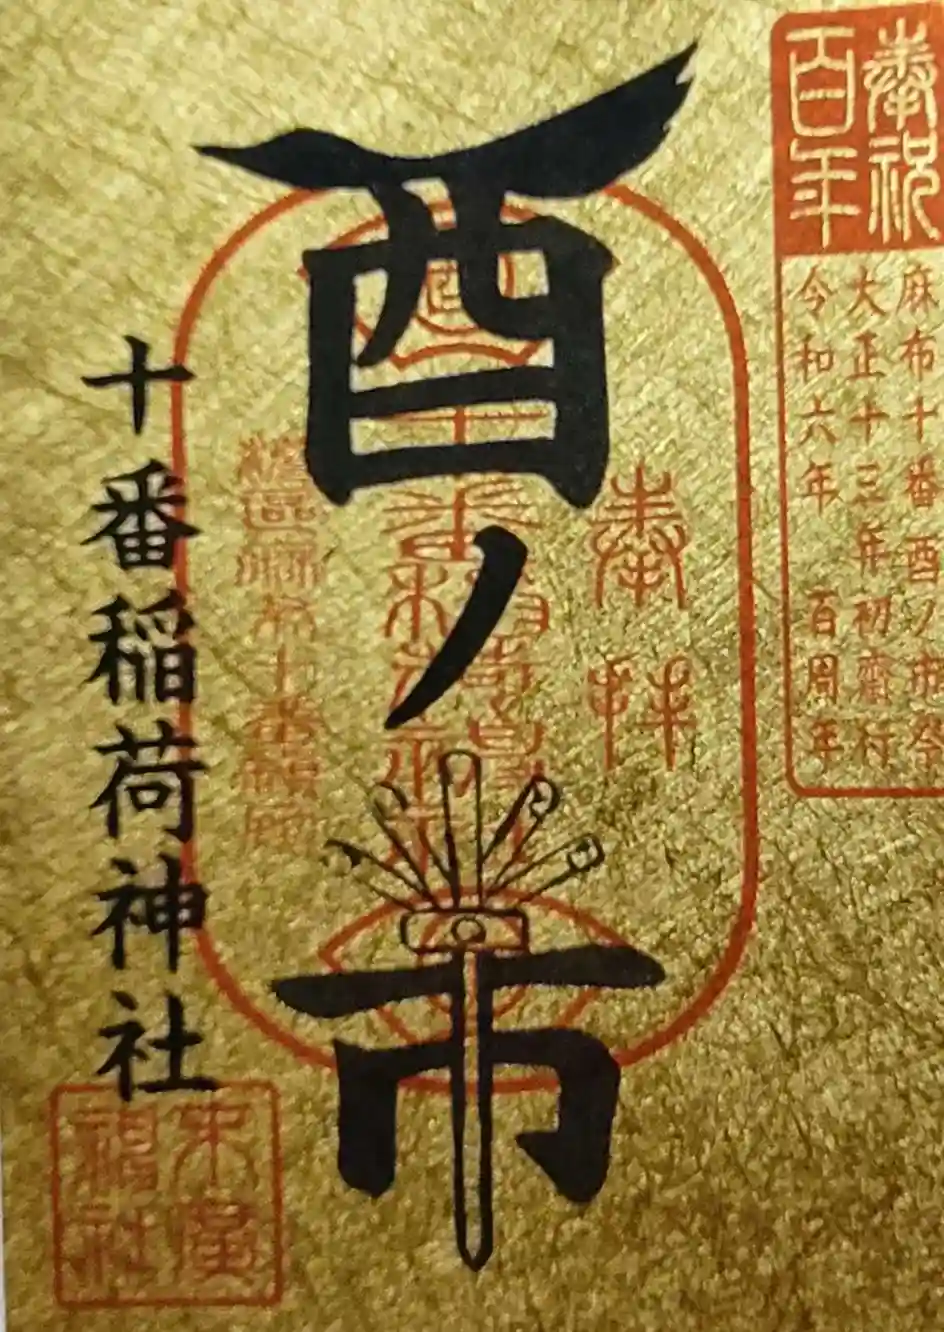 奉祝
百年
麻布十番酉ノ市祭
大正十三年初齋行
令和六年 百周年
奉拝
酉ノ市
十番稲荷神社
末廣
神社